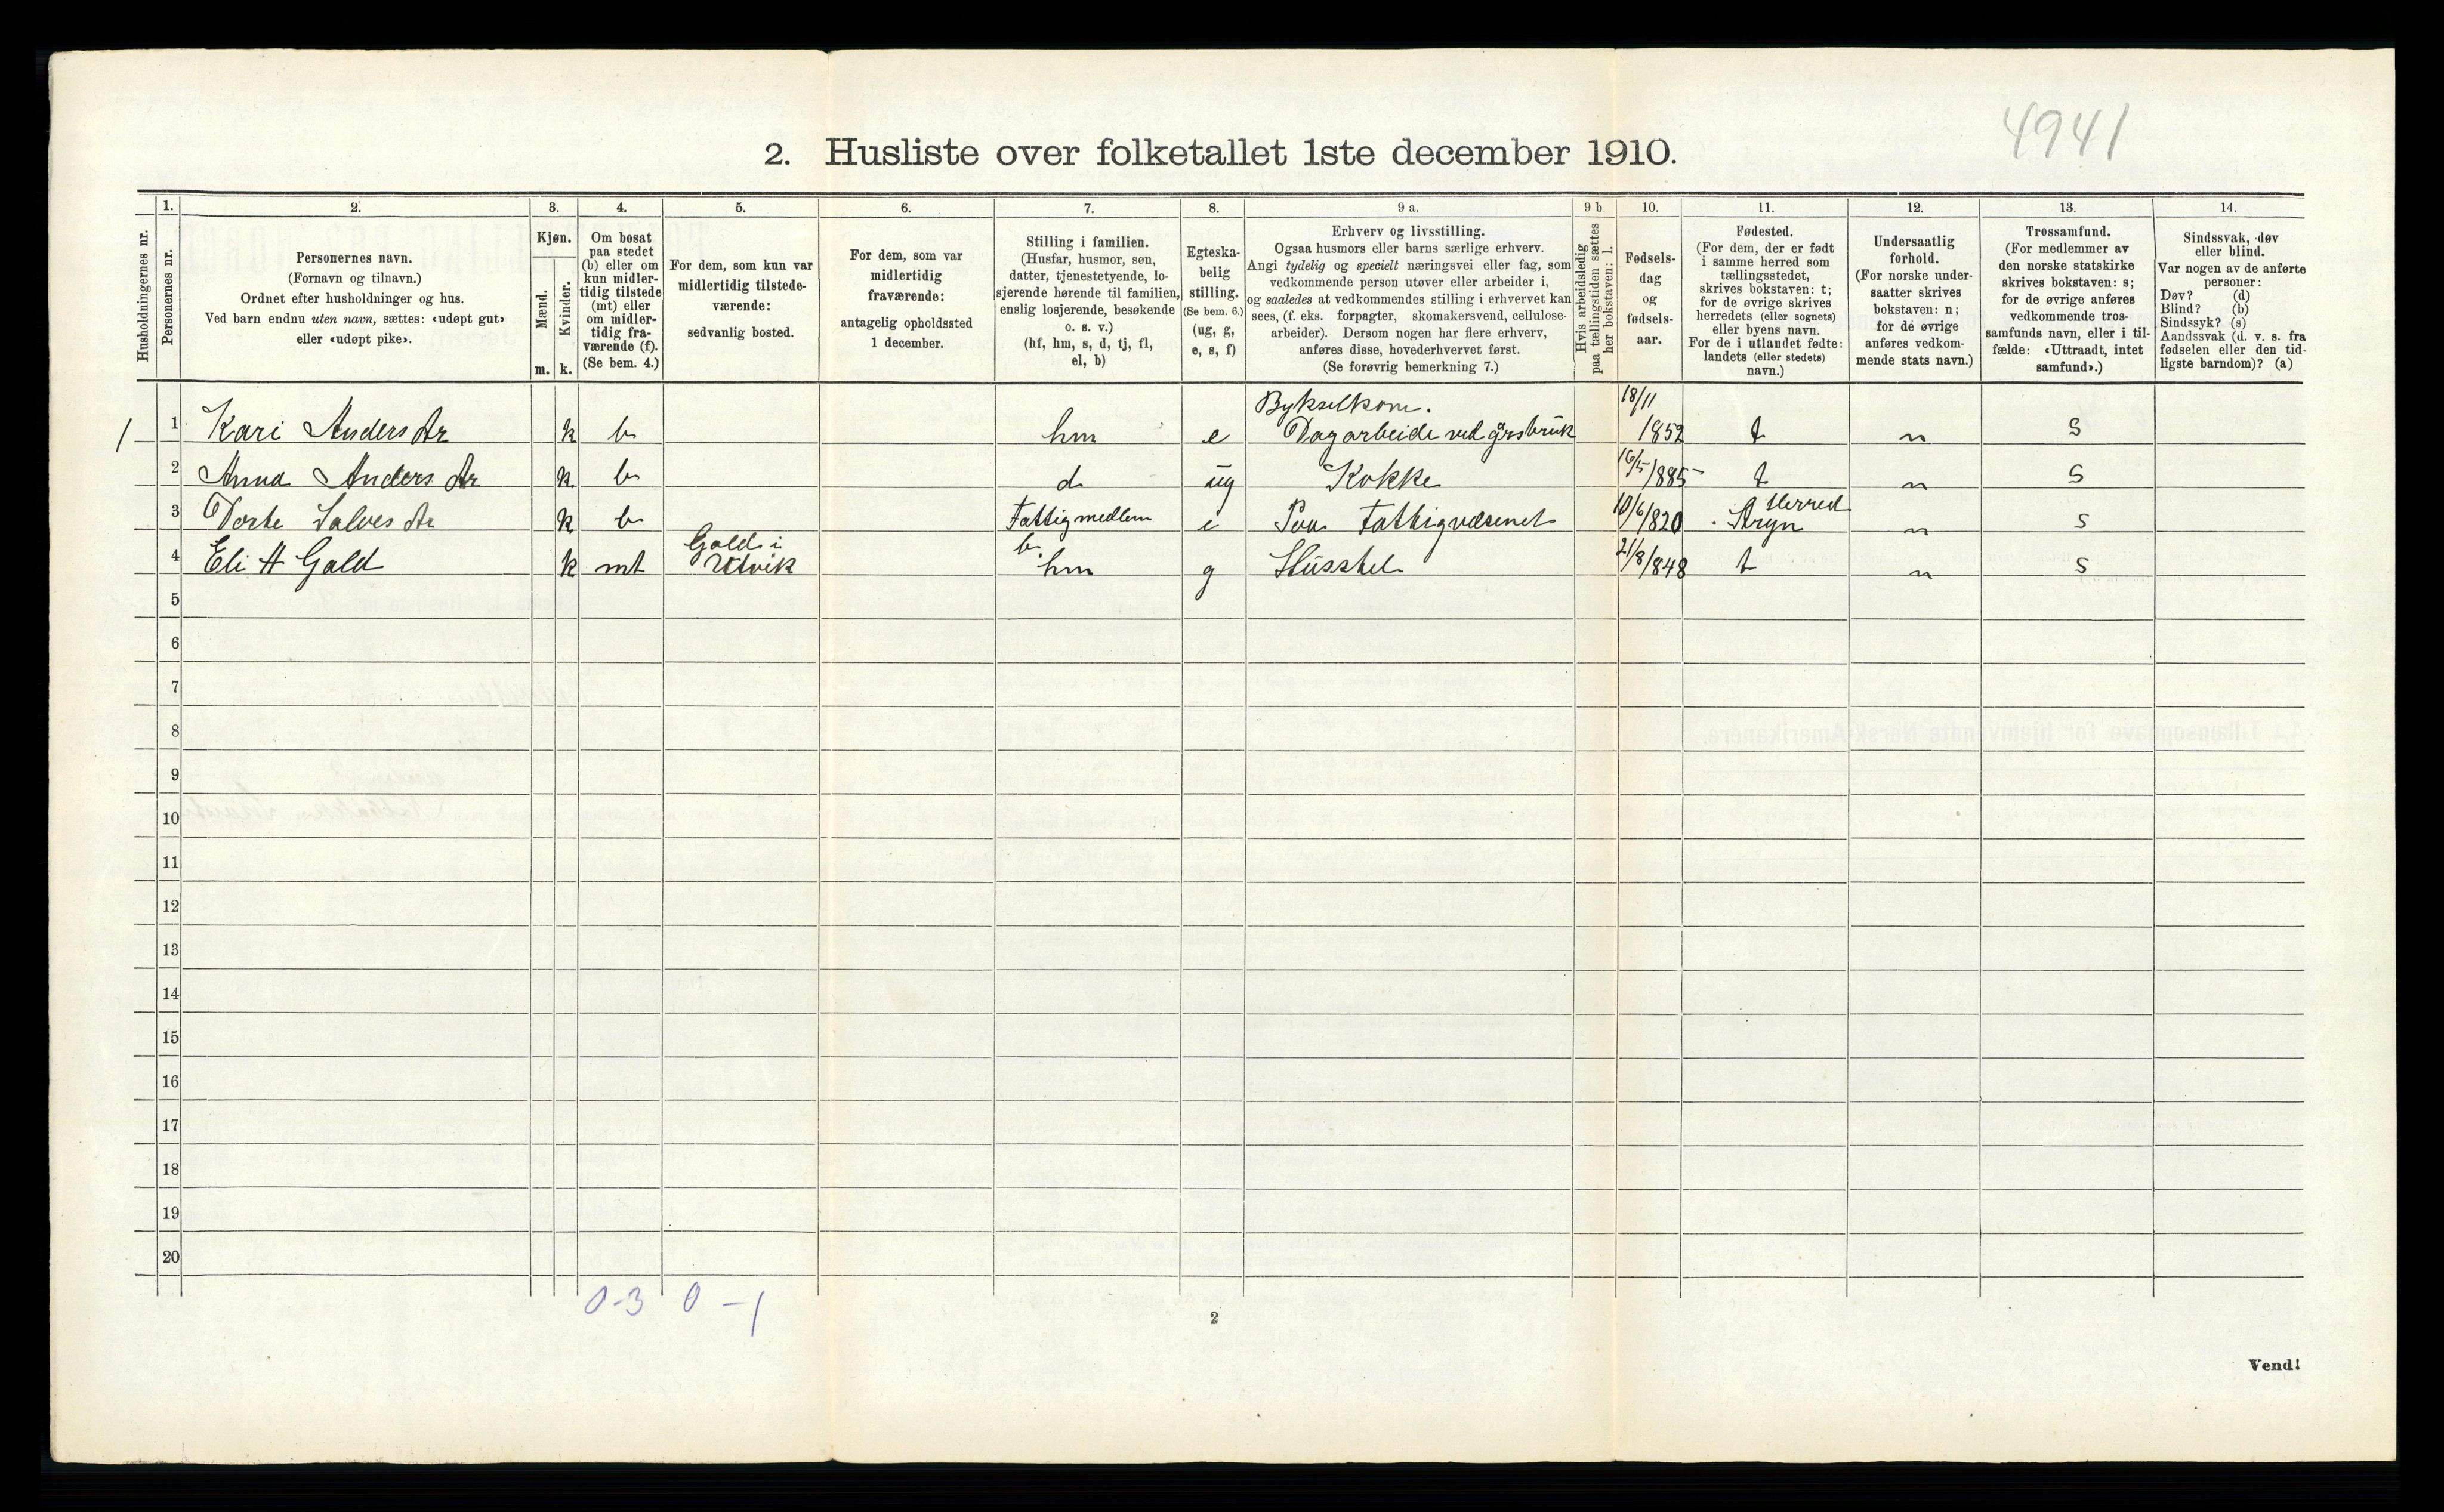 4941
2. Husliste over folketallet 1ste december 1910.
Husholdningernes nr.
1.
Personernes nr.
2.
Personernes navn.
(Fornavn og tilnavn.)
Ordnet efter husholdninger og hus.
Ved barn endnu uten navn, sættes: «udøpt gut»
eller «udøpt pike».
3.
Kjøn.
Mænd.
Kvinder.
m. k.
4.
Om bosat
paa stedet
(b) eller om
kun midler-
tidig tilstede
(mt) eller
om midler-
tidig fra-
værende (f).
(Se bem. 4.)
5.
For dem, som kun var
midlertidig tilstede-
værende:
sedvanlig bosted.
6.
For dem, som var
midlertidig
fraværende:
antagelig opholdssted
1 december.
7.
Stilling i familien.
(Husfar, husmor, søn,
datter, tjenestetyende, lo-
sjerende hørende til familien,
enslig losjerende, besøkende
o. s. v.)
(hf, hm, s, d, tj, fl,
el, b)
8.
Egteska-
belig
stilling.
(Se bem. 6.)
(ug, g,
e, s, f)
9 a.
Erhverv og livsstilling.
Ogsaa husmors eller barns særlige erhverv.
Angi tydelig og specielt næringsvei eller fag, som
vedkommende person utøver eller arbeider i,
og saaledes at vedkommendes stilling i erhvervet kan
sees, (f. eks. forpagter, skomakersvend, cellulose-
arbeider). Dersom nogen har flere erhverv,
anføres disse, hovederhvervet først.
(Se forøvrig bemerkning 7.)
9 b
Hvis arbeidsledig
paa tællingstiden sættes
her bokstaven: l.
10.
Fødsels-
dag
og
fødsels-
aar.
11.
Fødested.
(For dem, der er født
i samme herred som
tællingsstedet,
skrives bokstaven: t;
for de øvrige skrives
herredets (eller sognets)
eller byens navn.
For de i utlandet fødte:
landets (eller stedets)
navn.)
12.
Undersaatlig
forhold.
(For norske under-
saatter skrives
bokstaven: n;
for de øvrige
anføres vedkom-
mende stats navn.)
13.
Trossamfund.
(For medlemmer av
den norske statskirke
skrives bokstaven: s;
for de øvrige anføres
vedkommende tros-
samfunds navn, eller i til-
fælde: «Uttraadt, intet
samfund».)
14.
Sindssvak, døv
eller blind.
Var nogen av de anførte
personer:
Døv? (d)
Blind? (b)
Sindssyk? (s)
Aandssvak (d. v. s. fra
fødselen eller den tid-
ligste barndom)? (a)
Bykselkone. 18/11
1 1 Kari Anders dr k b hm e Dagarbeide ved grsbruk 1852 t n s
2 Anna Anders dr k b d ug Kokke 16/5/885 t n s
Herred
3 Dorte Salves dr k b Fattigmedlem i Paa Fattigvæsenet 10/6/820 Stryn n s
Gald i b.
4 Eli H Gald k mt Utvik hm g Husstel 21/8/848 t n s
5
6
7
8
9
10
11
12
13
14
15
16
17
18
19
20
0-3 0-1
2
Vend!